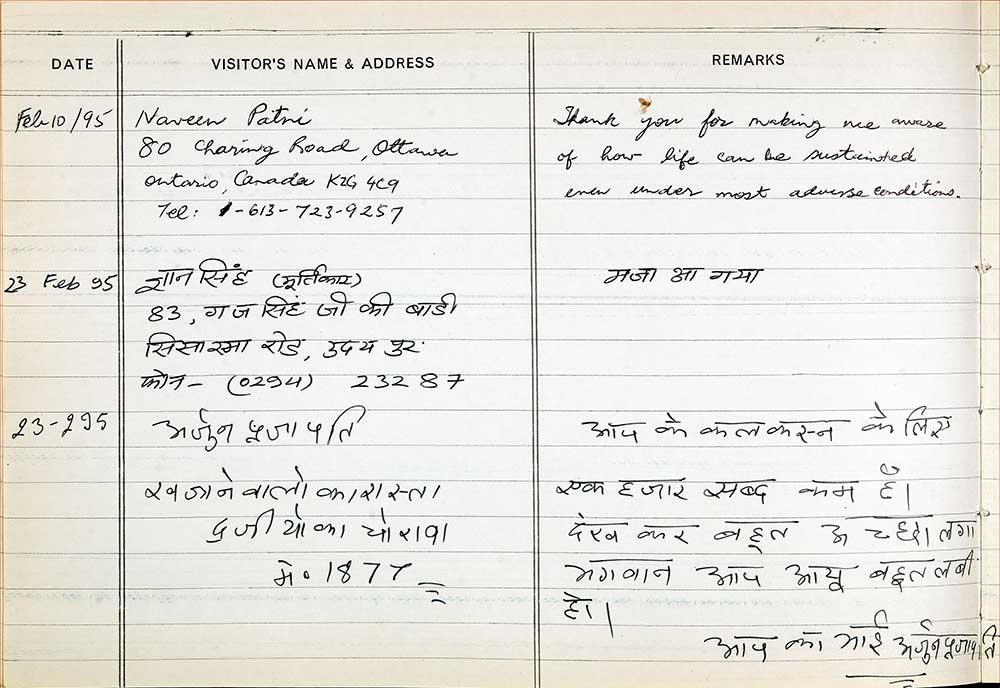 DATE VISITOR'S NAME & ADDRESS REMARKS
Feb 10/95 Naveen Patni
80 Charing Road, Ottawa
Ontario, Canada K2G 4C9
Tel: 1-613-723-9257
Thank you for making me aware
of how life can be sustainted
even under most adverse conditions.
23 Feb 95 ज्ञान सिंह (मूर्तिकार)
83, गज सिंह जी की बाडी
सिसारमा रोड, उदय पुर
फोन- (0294) 23287
मजा आ गया
23-295 अर्जुन प्रजापति
खजाने वालो का रास्ता
चो
मे॰ 1877
आप के कलकस्न के लिए
एक हजार सब्द कम है।
देख कर बहूत अच्छा लगा
भगवान आप आयू बहूत लबी
दे।
आप का भाई अर्जुन प्रजापति